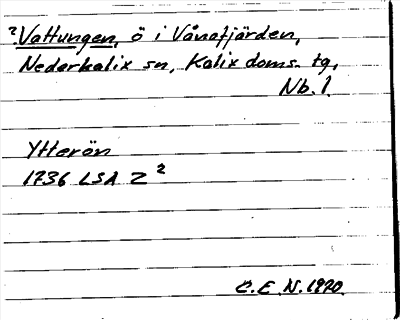 ?Vattungen, ö i Vånafjärden,
Nederkalix sn, Kalix doms. tg,
Nb. l.
Ytterön
1736 LSA Z²
C.E.N. 1970.